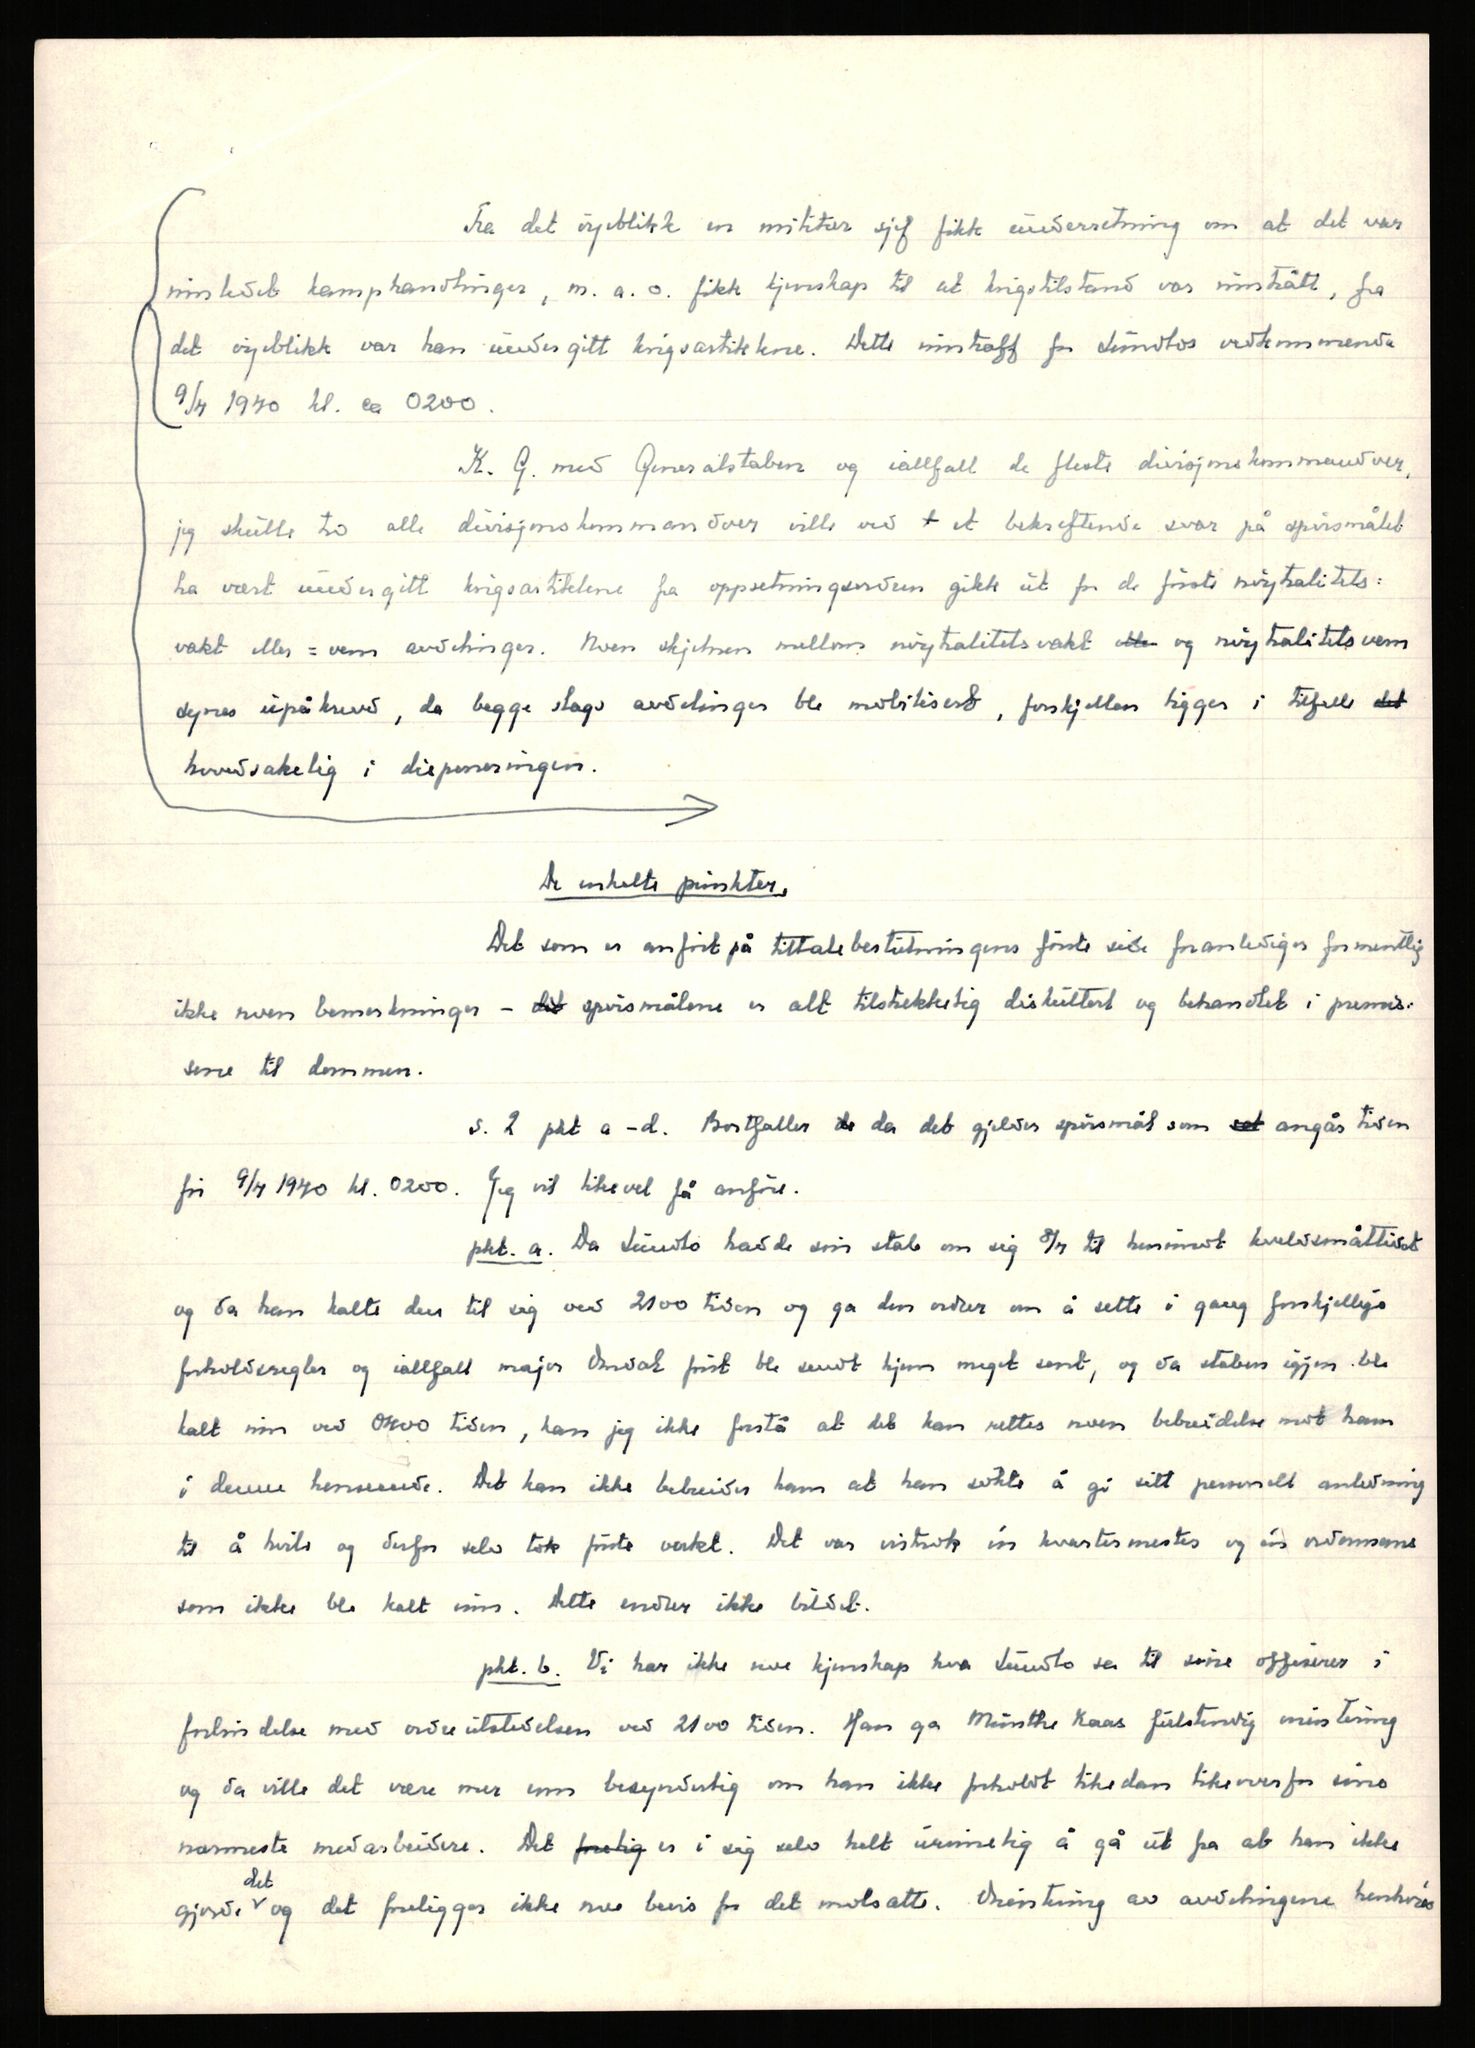 Fra det öyeblikk en militær sjef fikk underretning om at det var
innledet kamphandlinger, m. a. o. fikk kjenskap til at krigstilstand var inntrått, fra
det öyeblikk var han undergitt krigsartiklene. Dette inntraff for Sundlos vedkommende
9/4 1940 kl. ca 0200.
K. G. med Generalstaben og iallfall de fleste divisjonskommandoer,
jeg skulle tro alle divisjonskommandoer ville ved et bekreftende svar på spörsmålet
ha vært undergitt krigsartiklene fra oppsetningsordren gikk ut for de förste nöytralitets=
vakt eller =vern avdelinger. Noen skjelnen mellom nöytralitetsvakt eller og nöytralitetsvern
synes upåkrevd, da begge slags avdelinger ble mobilisert, forskjellen ligger i tilfelle det
hovedsakelig i disponeringen.
De enkelte punkter.
Det som er anfört på tiltalebeslutningens förste side foranlediger formentlig
ikke noen bemerkninger - det spörsmålene er alt tilstrekkelig diskutert og behandlet i premis=
sene til dommen.
s. 2 pkt a-d. Bortfaller de da det gjelder spörsmål som angår tiden
för 9/4 1940 kl. 0200. Jeg vil likevel få anföre.
pkt. a. Da Sundlo hadde sin stab om sig 8/4 til henimot kveldsmåltidet
og da han kalte den til sig ved 2100 tiden og ga den ordrer om å sette i gang forskjellige
forholdsregler og iallfall major Omdal först ble sendt hjem meget sent, og da staben igjen ble
kalt inn ved 0400 tiden, kan jeg ikke forstå at det kan rettes noen bebreidelse mot ham
i denne henseende. Det kan ikke bebreides ham at han sökte å gi sitt personell anledning
til å hvile og derfor selv tok förste vakt. Det var vistnok én kvartermester og én ordonnans
som ikke ble kalt inn. Dette endrer ikke bildet.
pkt. b. Vi har ikke noe kjenskap hva Sundlo sa til sine offiserer i
forbindelse med ordreutstedelsen ved 2100 tiden. Han ga Munthe Kaas fulstendig orientering
og da ville det være mer enn besynderlig om han ikke forholdt likedan likeoverfor sine
nærmeste medarbeidere. Det forelig er i sig selv helt urimelig å gå ut fra at han ikke
gjorde det og det foreligger ikke noe bevis for det motsatte. Orientering av avdelingene henhörer